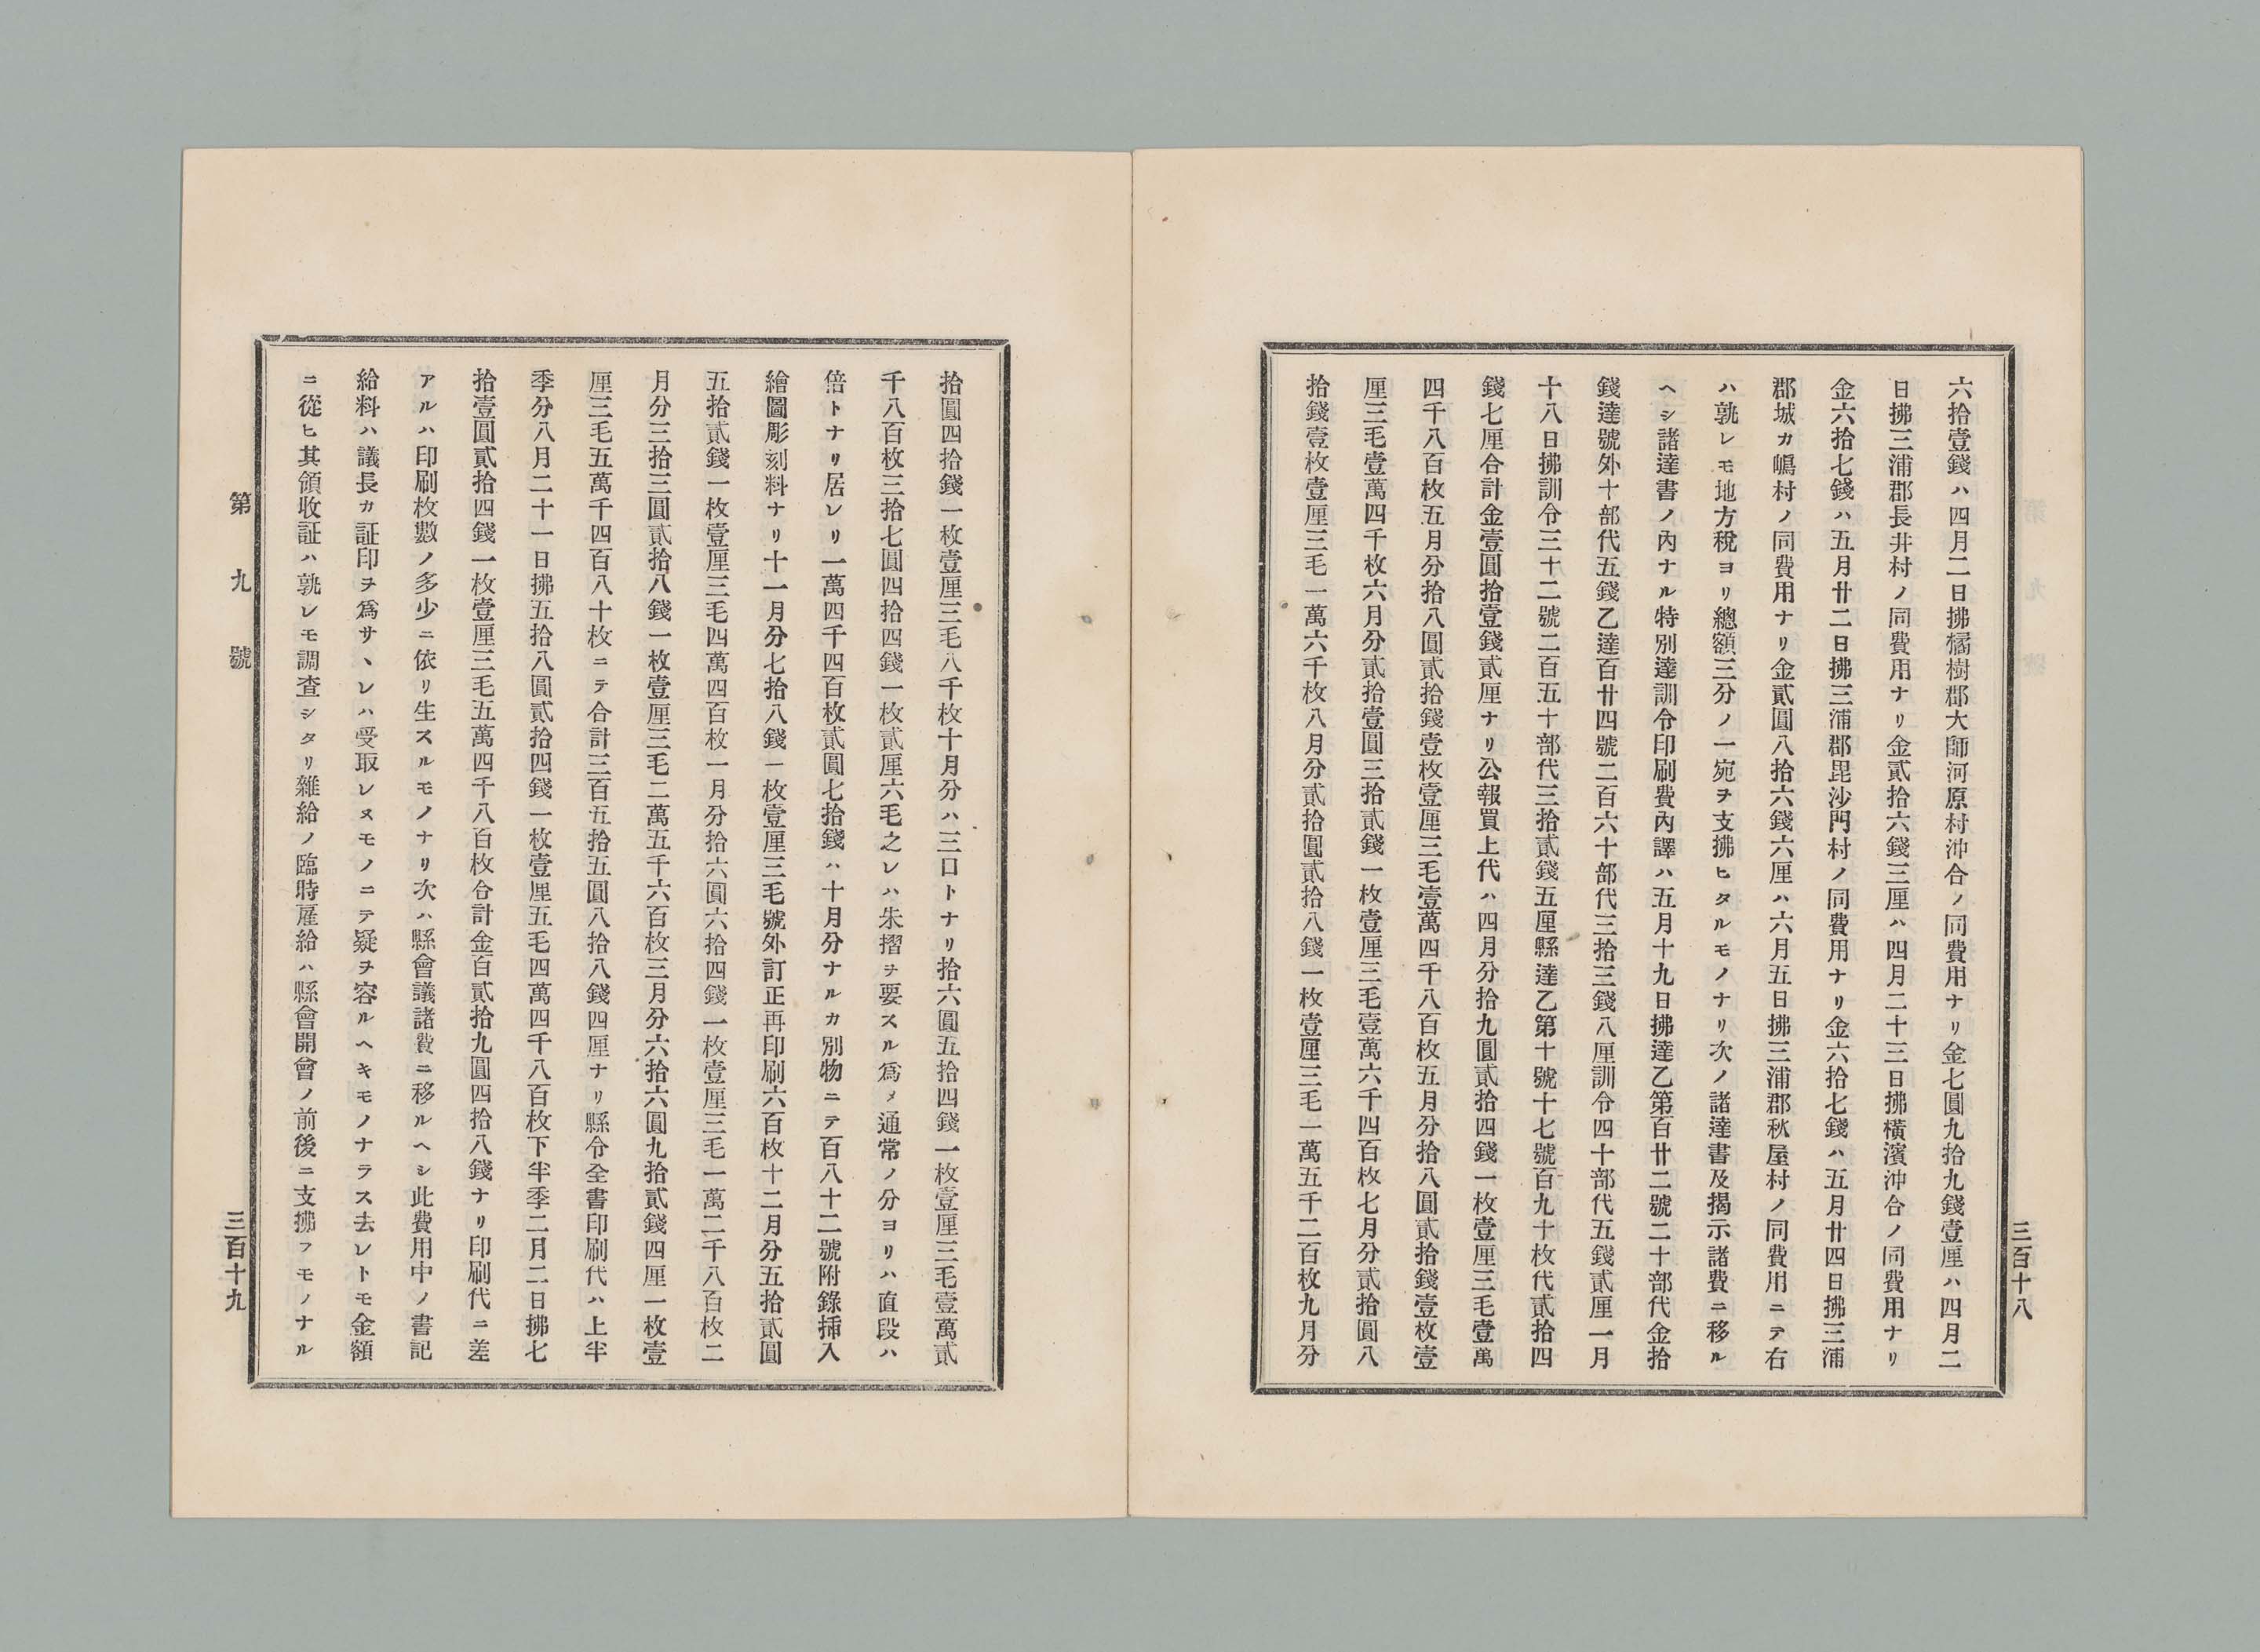 三百十八
六拾壹錢ハ四月二日拂橘樹郡大師河原村沖合ノ同費用ナリ金七圓九拾九錢壹厘ハ四月二
日拂三浦郡長井村ノ同費用ナリ金貳拾六錢三厘ハ四月二十三日拂橫濱沖合ノ同費用ナリ
金六拾七錢ハ五月廿二日拂三浦郡毘沙門村ノ同費用ナリ金六拾七錢ハ五月廿四日拂三浦
郡城カ嶋村ノ同費用ナリ金貳圓八拾六錢六厘ハ六月五日拂三浦郡秋屋村ノ同費用ニテ右
ハ孰レモ地方稅ヨリ總額三分ノ一宛ヲ支拂ヒタルモノナリ次ノ諸達書及揭示諸費ニ移ル
ヘシ諸達書ノ內ナル特別達訓令印刷費內譯ハ五月十九日拂達乙第百廿二號二十部代金拾
錢達號外十部代五錢乙達百廿四號二百六十部代三拾三錢八厘訓令四十部代五錢貳厘一月
十八日拂訓令三十二號二百五十部代三拾貳錢五厘縣達乙第十號十七號百九十枚代貳拾四
錢七厘合計金壹圓拾壹錢貳厘ナリ公報買上代ハ四月分拾九圓貳拾四錢一枚壹厘三毛壹萬
四千八百枚五月分拾八圓貳拾錢壹枚壹厘三毛壹萬四千八百枚五月分拾八圓貳拾錢壹枚壹
厘三毛壹萬四千枚六月分貳拾壹圓三拾貳錢一枚壹厘三毛壹萬六千四百枚七月分貳拾圓八
拾錢壹枚壹厘三毛一萬六千枚八月分貳拾圓貳拾八錢一枚壹厘三毛一萬五千二百枚九月分
拾圓四拾錢一枚壹厘三毛八千枚十月分ハ三口トナリ拾六圓五拾四錢一枚壹厘三毛壹萬貳
千八百枚三拾七圓四拾四錢一枚貳厘六毛之レハ朱摺ヲ要スル爲メ通常ノ分ヨリハ直段ハ
倍トナリ居レリ一萬四千四百枚貳圓七拾錢ハ十月分ナルカ別物ニテ百八十二號附錄挿入
繪圖彫刻料ナリ十一月分七拾八錢一枚壹厘三毛號外訂正再印刷六百枚十二月分五拾貳圓
五拾貳錢一枚壹厘三毛四萬四百枚一月分拾六圓六拾四錢一枚壹厘三毛一萬二千八百枚二
月分三拾三圓貳拾八錢一枚壹厘三毛二萬五千六百枚三月分六拾六圓九拾貳錢四厘一枚壹
厘三毛五萬千四百八十枚ニテ合計三百五拾五圓八拾八錢四厘ナリ縣令全書印刷代ハ上半
季分八月二十一日拂五拾八圓貳拾四錢一枚壹厘五毛四萬四千八百枚下半季二月二日拂七
拾壹圓貳拾四錢一枚壹厘三毛五萬四千八百枚合計金百貳拾九圓四拾八錢ナリ印刷代ニ差
アルハ印刷枚數ノ多少ニ依リ生スルモノナリ次ハ縣會議諸費ニ移ルヘシ此費用中ノ書記
給料ハ議長カ証印ヲ爲サヽレハ受取レヌモノニテ疑ヲ容ルヘキモノナラス去レトモ金額
ニ從ヒ其領收証ハ孰レモ調查シタリ雜給ノ臨時雇給ハ縣會開會ノ前後ニ支拂フモノナル
第九號
三百十九